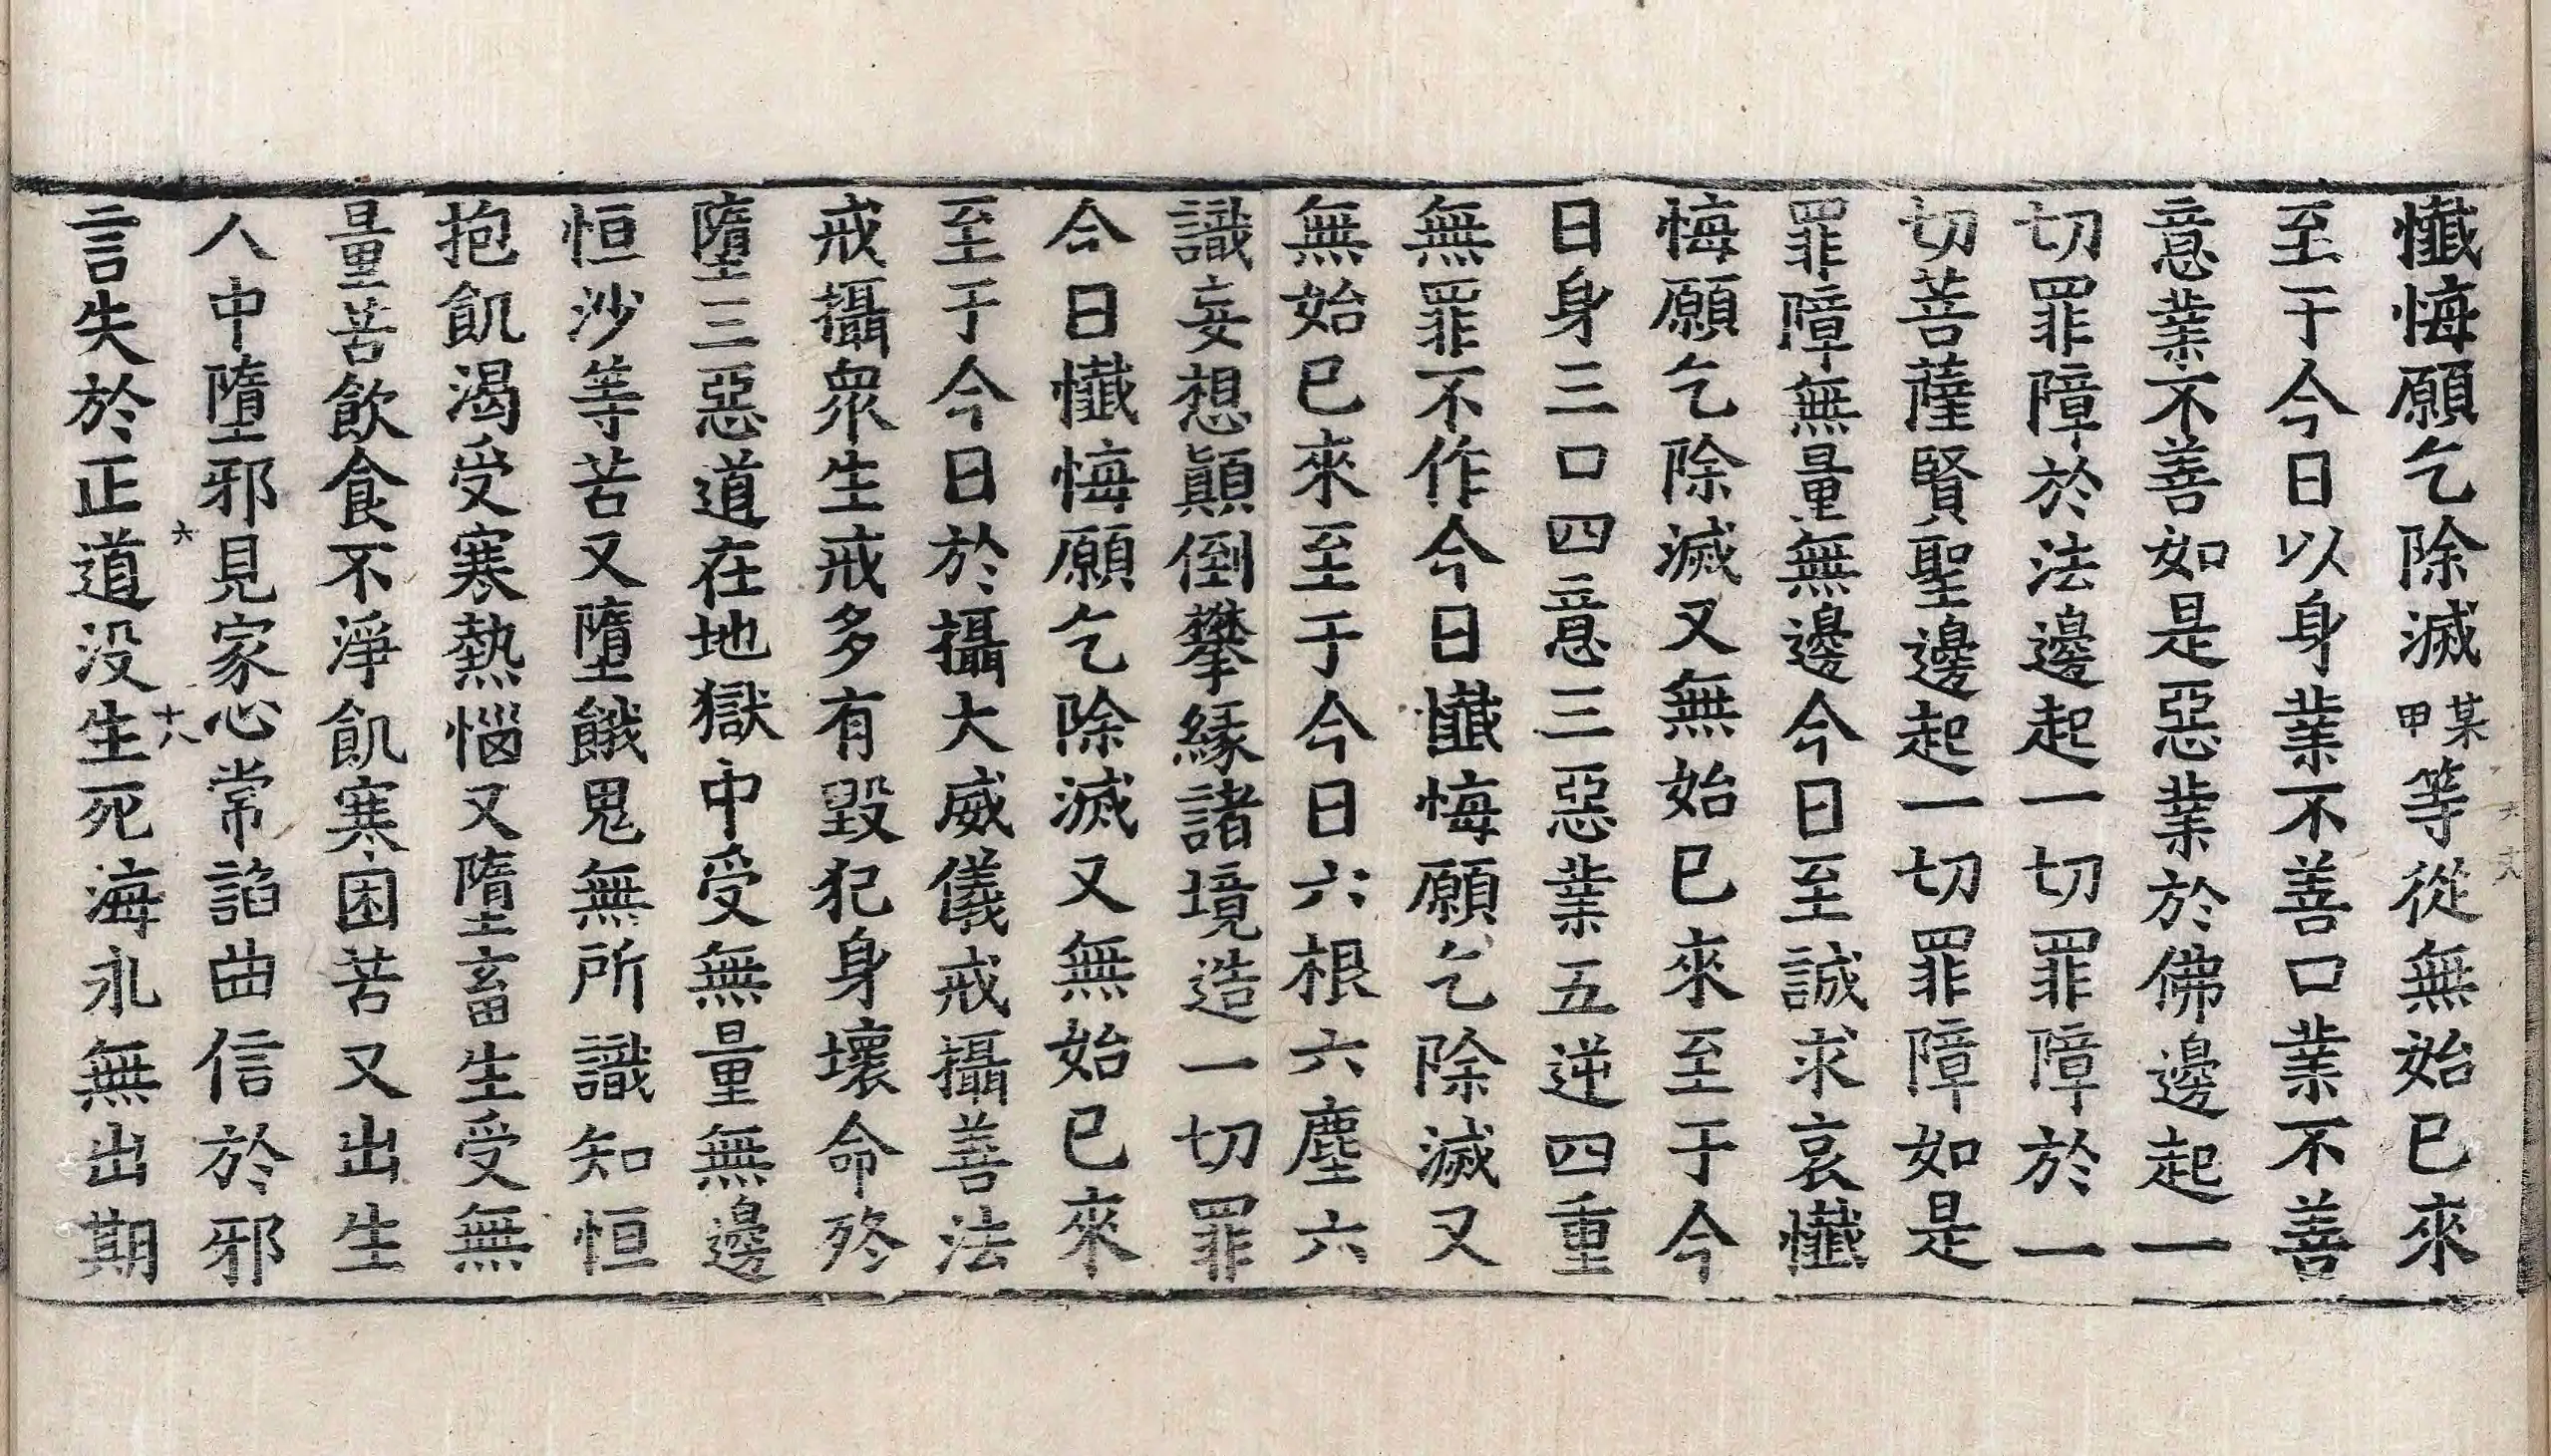 懺悔願乞除滅某甲等從無始已來
至于今日以身業不善口業不善
意業不善如是惡業於佛邊起一
切罪障於法邊起一切罪障於一
切菩薩賢聖邊起一切罪障如是
罪障無量無邊今日至誠求哀懺
悔願乞除滅又無始已來至于今
日身三口四意三惡業五逆四重
無罪不作今日懺悔願乞除滅又
無始已來至于今日六根六塵六
識妄想顛倒攀緣諸境造一切罪
今日懺悔願乞除滅又無始已來
至于今日於攝大威儀戒攝善法
戒攝衆生戒多有毀犯身壞命終
墮三惡道在地獄中受無量無邊
恒沙等苦又墮餓鬼無所識知恒
抱飢渴受寒熱惱又墮畜生受無
量苦飲食不淨飢寒困苦又出生
人中墮邪見家心常諂曲信於邪
言失於正道没生死海永無出期
六
十八